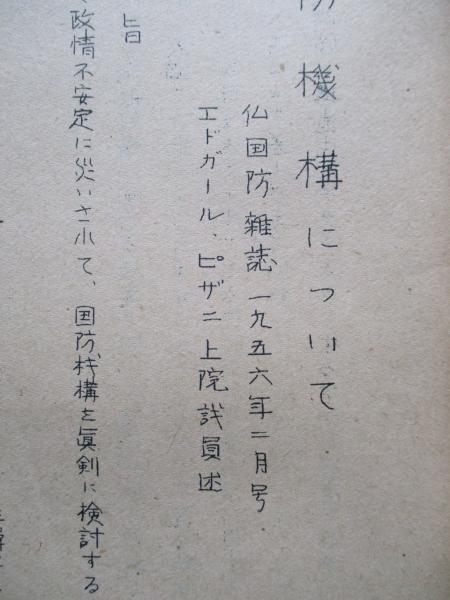 防機構について
仏国防雑誌一九五六年二月号.
エドガール、ピザニ上院議員述
旨
政情不安定に災いされて、国防机構を真剣に検討する